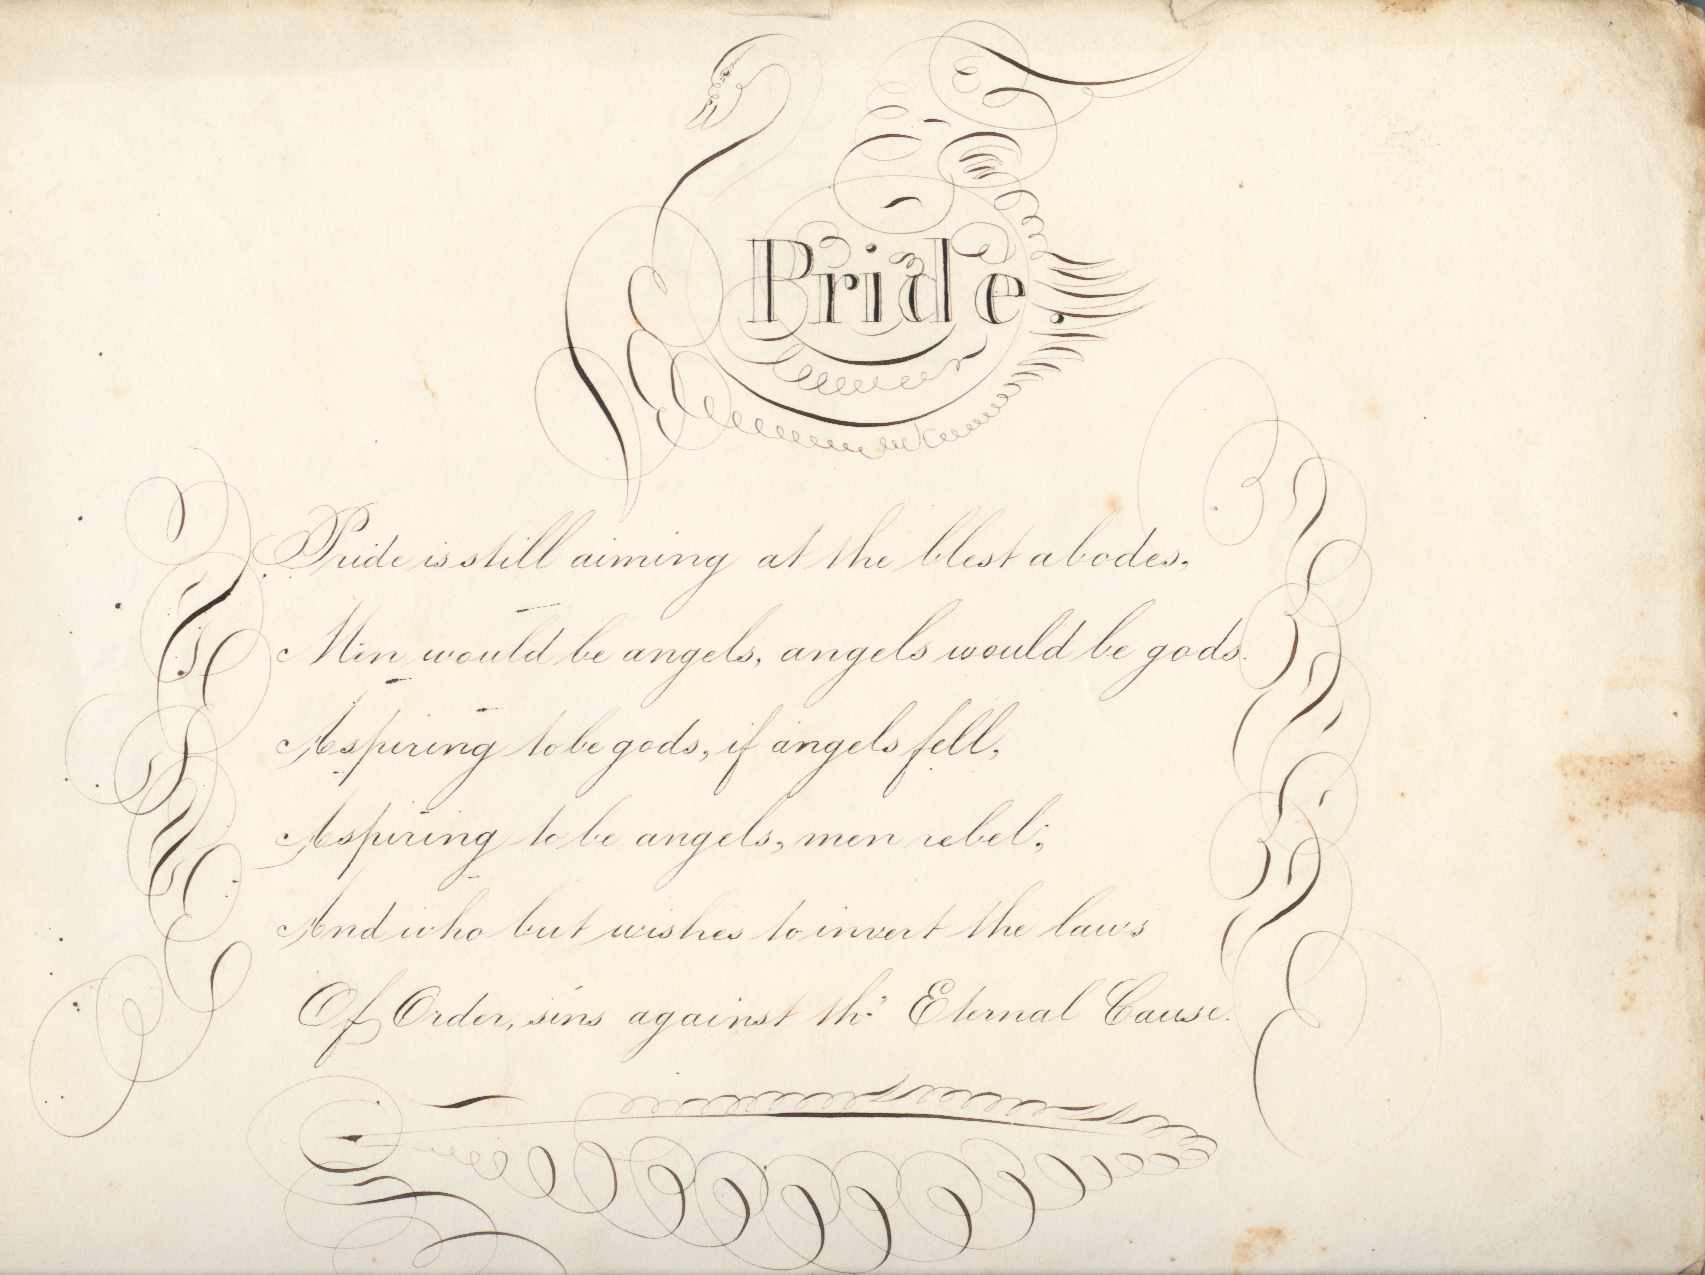 Pride.
Pride is still aiming at the blest abodes,
Men would be angels, angels would be gods.
Aspiring to be gods, if angels fell,
Aspiring to be angels, men rebel;
And who but wishes to invert the laws
Of Order, sins against th' Eternal Cause.